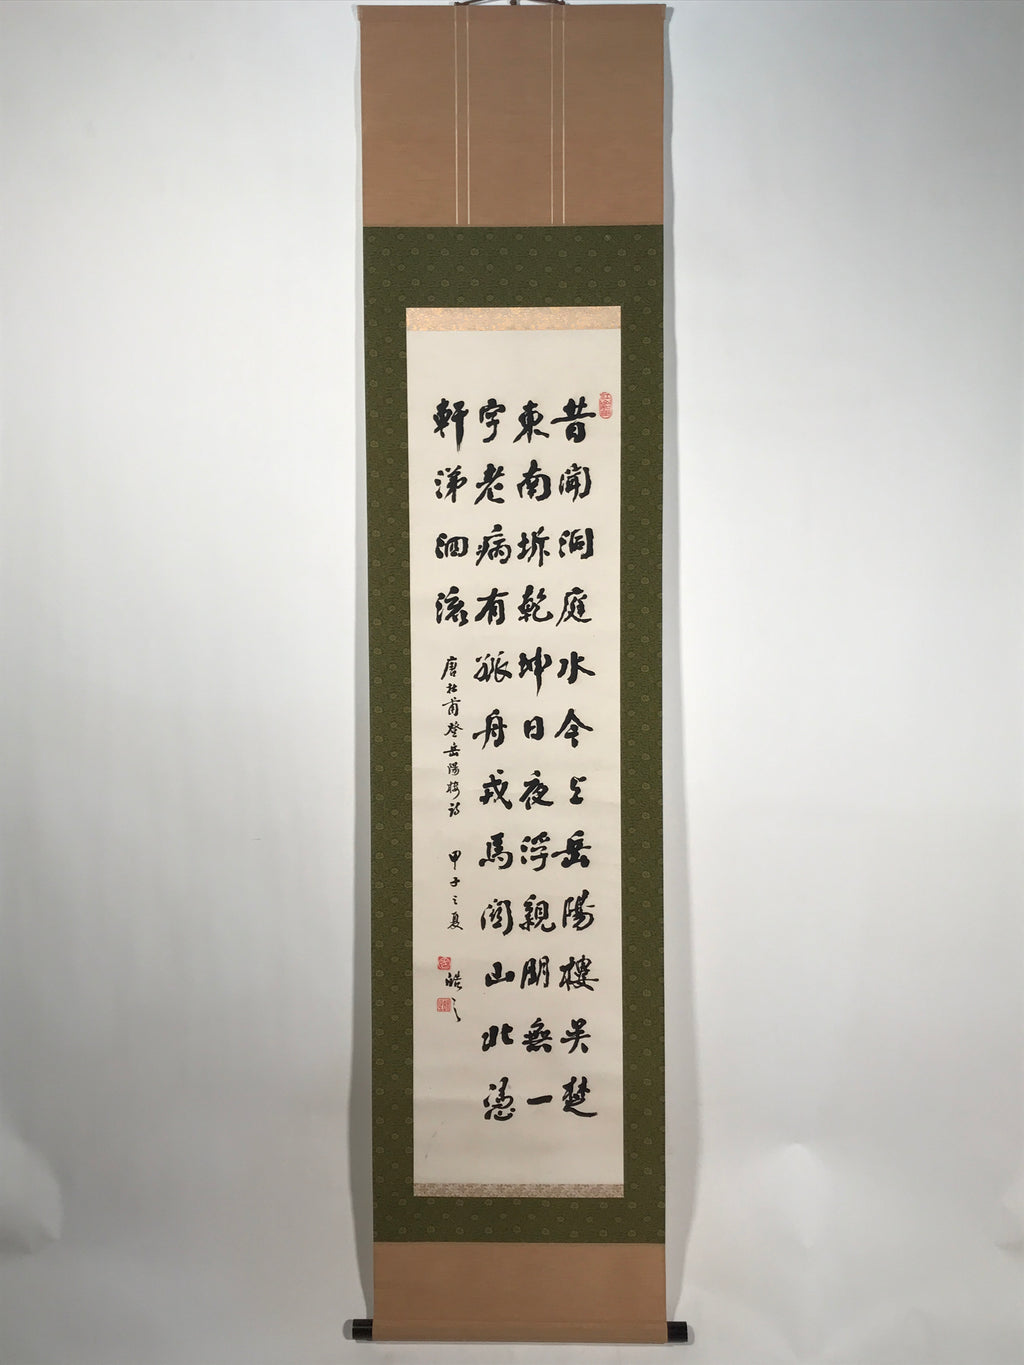 昔聞洞庭水今上岳陽樓吴楚
東南坼乾坤日夜浮親朋無一
字老病有孤舟戎馬関山北憑
軒涕泗流
唐杜甫登岳陽楼詩 甲子之夏 皓之